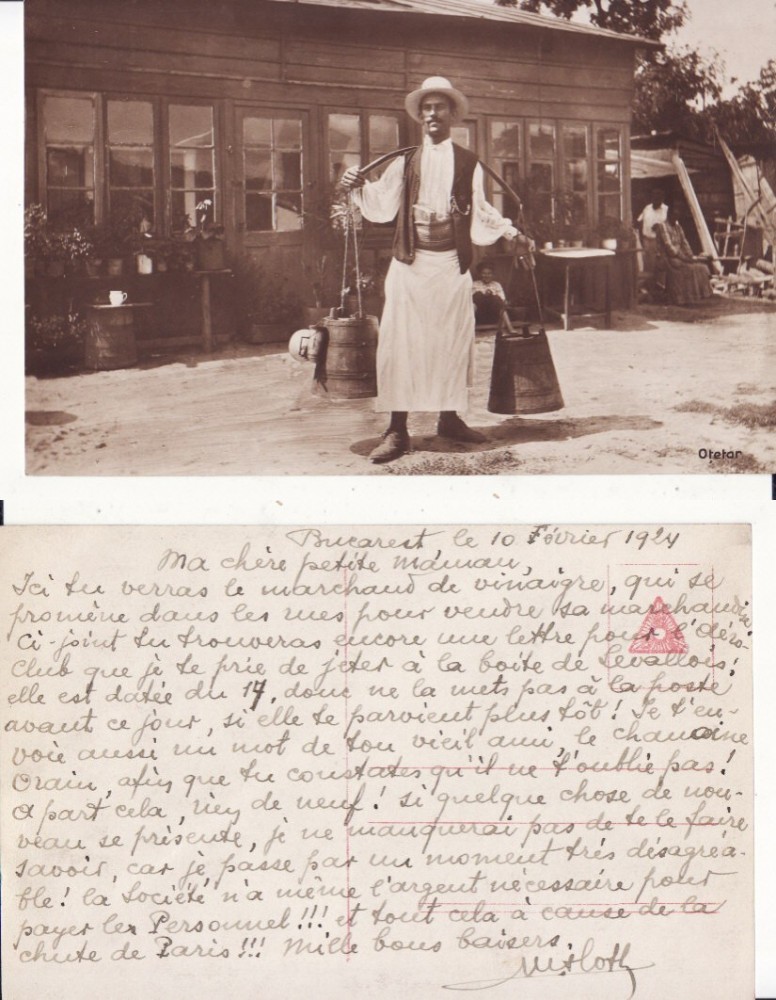 Oțetar
Bucarest le 10 Février 1924
Ma chère petite Maman,
Ici tu verras le marchand de vinaigre, qui se
promène dans les rues pour vendre sa marchandise.
Ci-joint tu trouveras encore une lettre pour l'Aéro-
Club que je te prie de jeter à la boîte de Levallois;
elle est datée du 14, donc ne la mets pas à la poste
avant ce jour, si elle te parvient plus tôt! Je t'en-
voie aussi un mot de ton vieil ami, le chanoine
Orain, afin que tu constates qu'il ne t'oublie pas!
A part cela, rien de neuf! si quelque chose de nou-
veau se présente, je ne manquerai pas de te le faire
savoir, car je passe par un moment très désagréa-
ble! la Société n'a même l'argent nécessaire pour
payer le Personnel!!! et tout cela à cause de la
chute de Paris!!! Mille bons baisers.